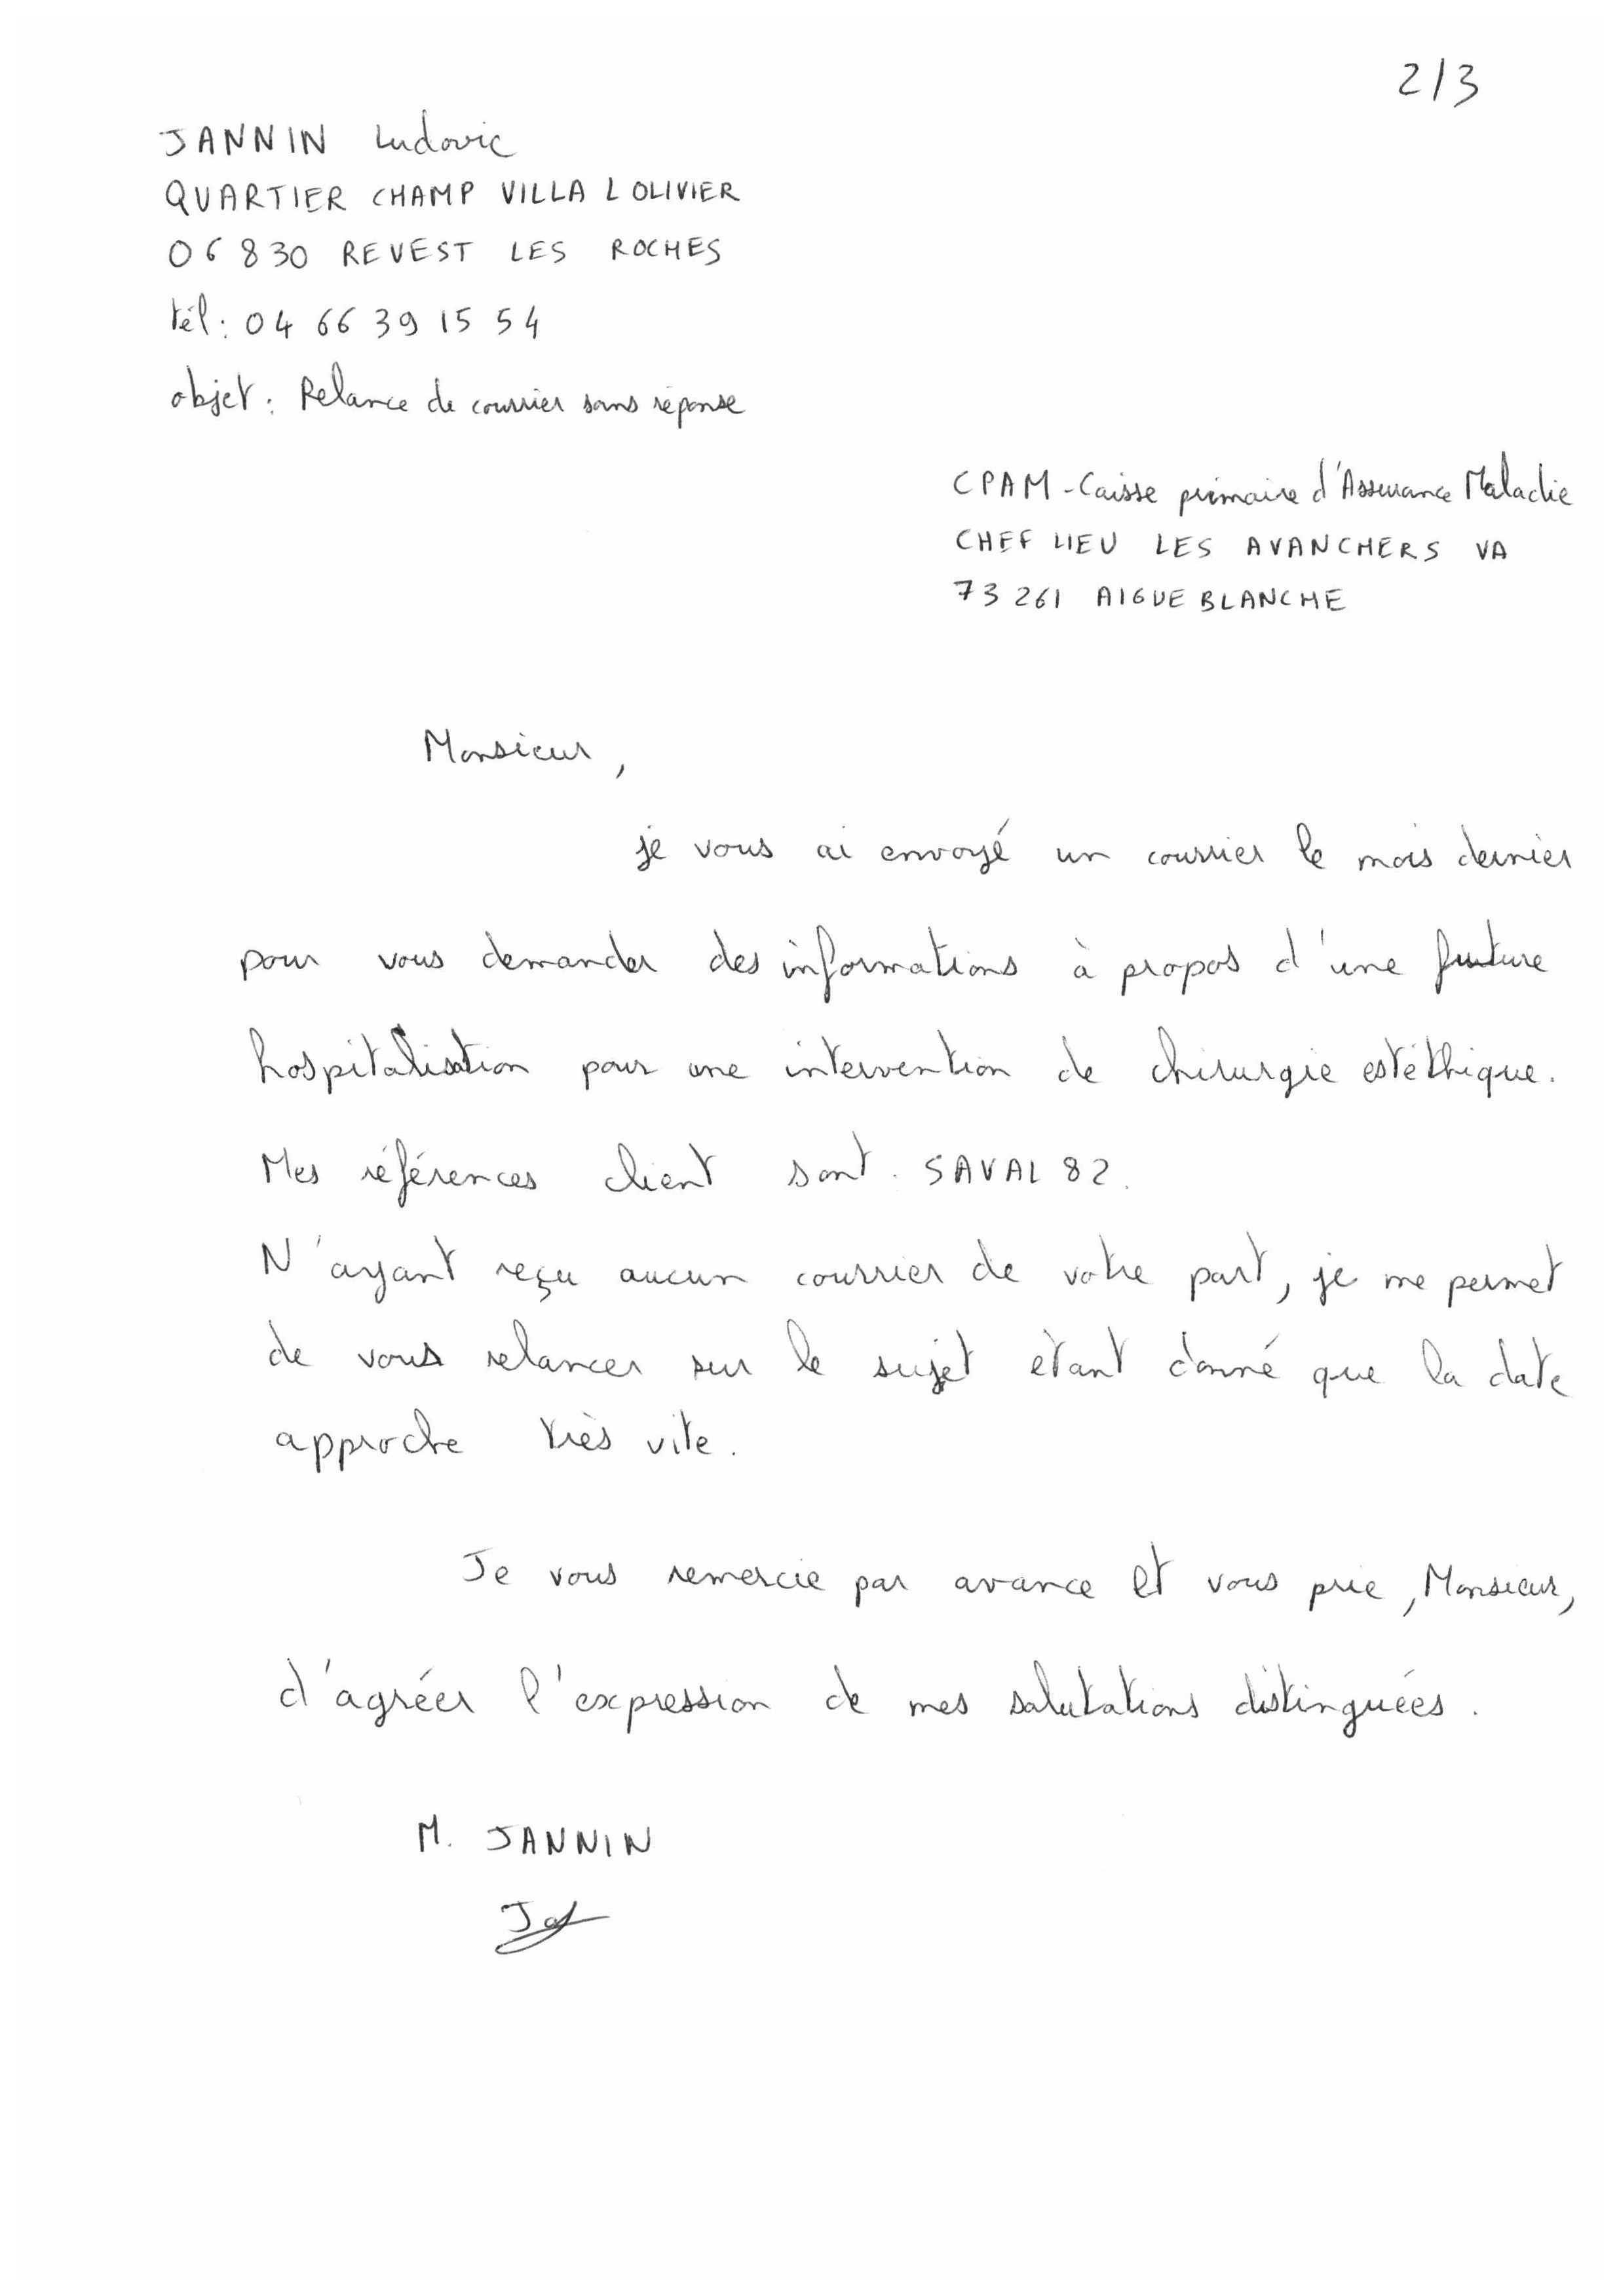 2/3
JANNIN Ludovic
QUARTIER CHAMP VILLA L OLIVIER
06 830 REVEST LES ROCHES
tél: 04 66 39 15 54
objet: Relance de courrier sans réponse
CPAM - Caisse primaire d'Assurance Maladie
CHEF LIEU LES AVANCHERS VA
73 261 AIGUEBLANCHE
Monsieur,
je vous ai envoyé un courrier le mois dernier
pour vous demander des informations à propos d'une future
hospitalisation pour une intervention de chirurgie estéthique.
Mes références client sont. SAVAL 82.
N'ayant reçu aucun courrier de votre part, je me permet
de vous relancer sur le sujet étant donné que la date
approche très vite.
Je vous remercie par avance et vous prie, Monsieur,
d'agréer l'expression de mes salutations distinguées.
M. JANNIN